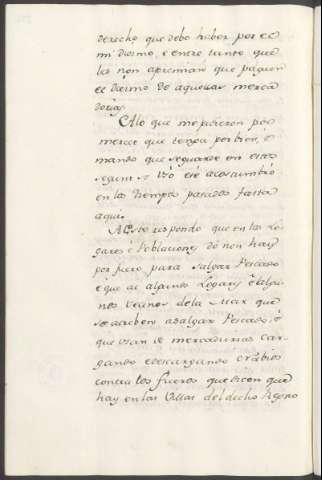 derecho que debo haber por el
mi diesmo, e entre tanto que
les non apremian que paguen
el diezmo de aquellas merca
dorias
Alo que me pidieron por
merced que tenga por bien, e
mando que se guarde en esto
segun se usò ere acostumbrò
en los tiempos pasados fasta
aqui.
A esto respondo que en los Lo
gares è Poblaciones dò non hay
por fuero para salgar Pescado
e que ai algunos Logares ò algu
nos vecinos dela Mar que
se atreben asalgar Pescado, ò
que usan de mercadurias car
gando e descargando
contra los fueros que dicen que
hay en las Villas del dicho